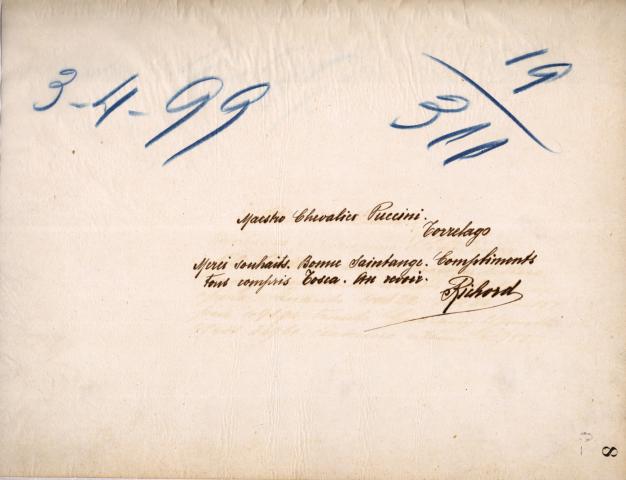 3-4-99
19
311
Maestro Chevalier Puccini.
Torrelago
Merci souhaits. Bonne Saintange. Compliments
tous compris Tosca. Au revoir.
Richord
8